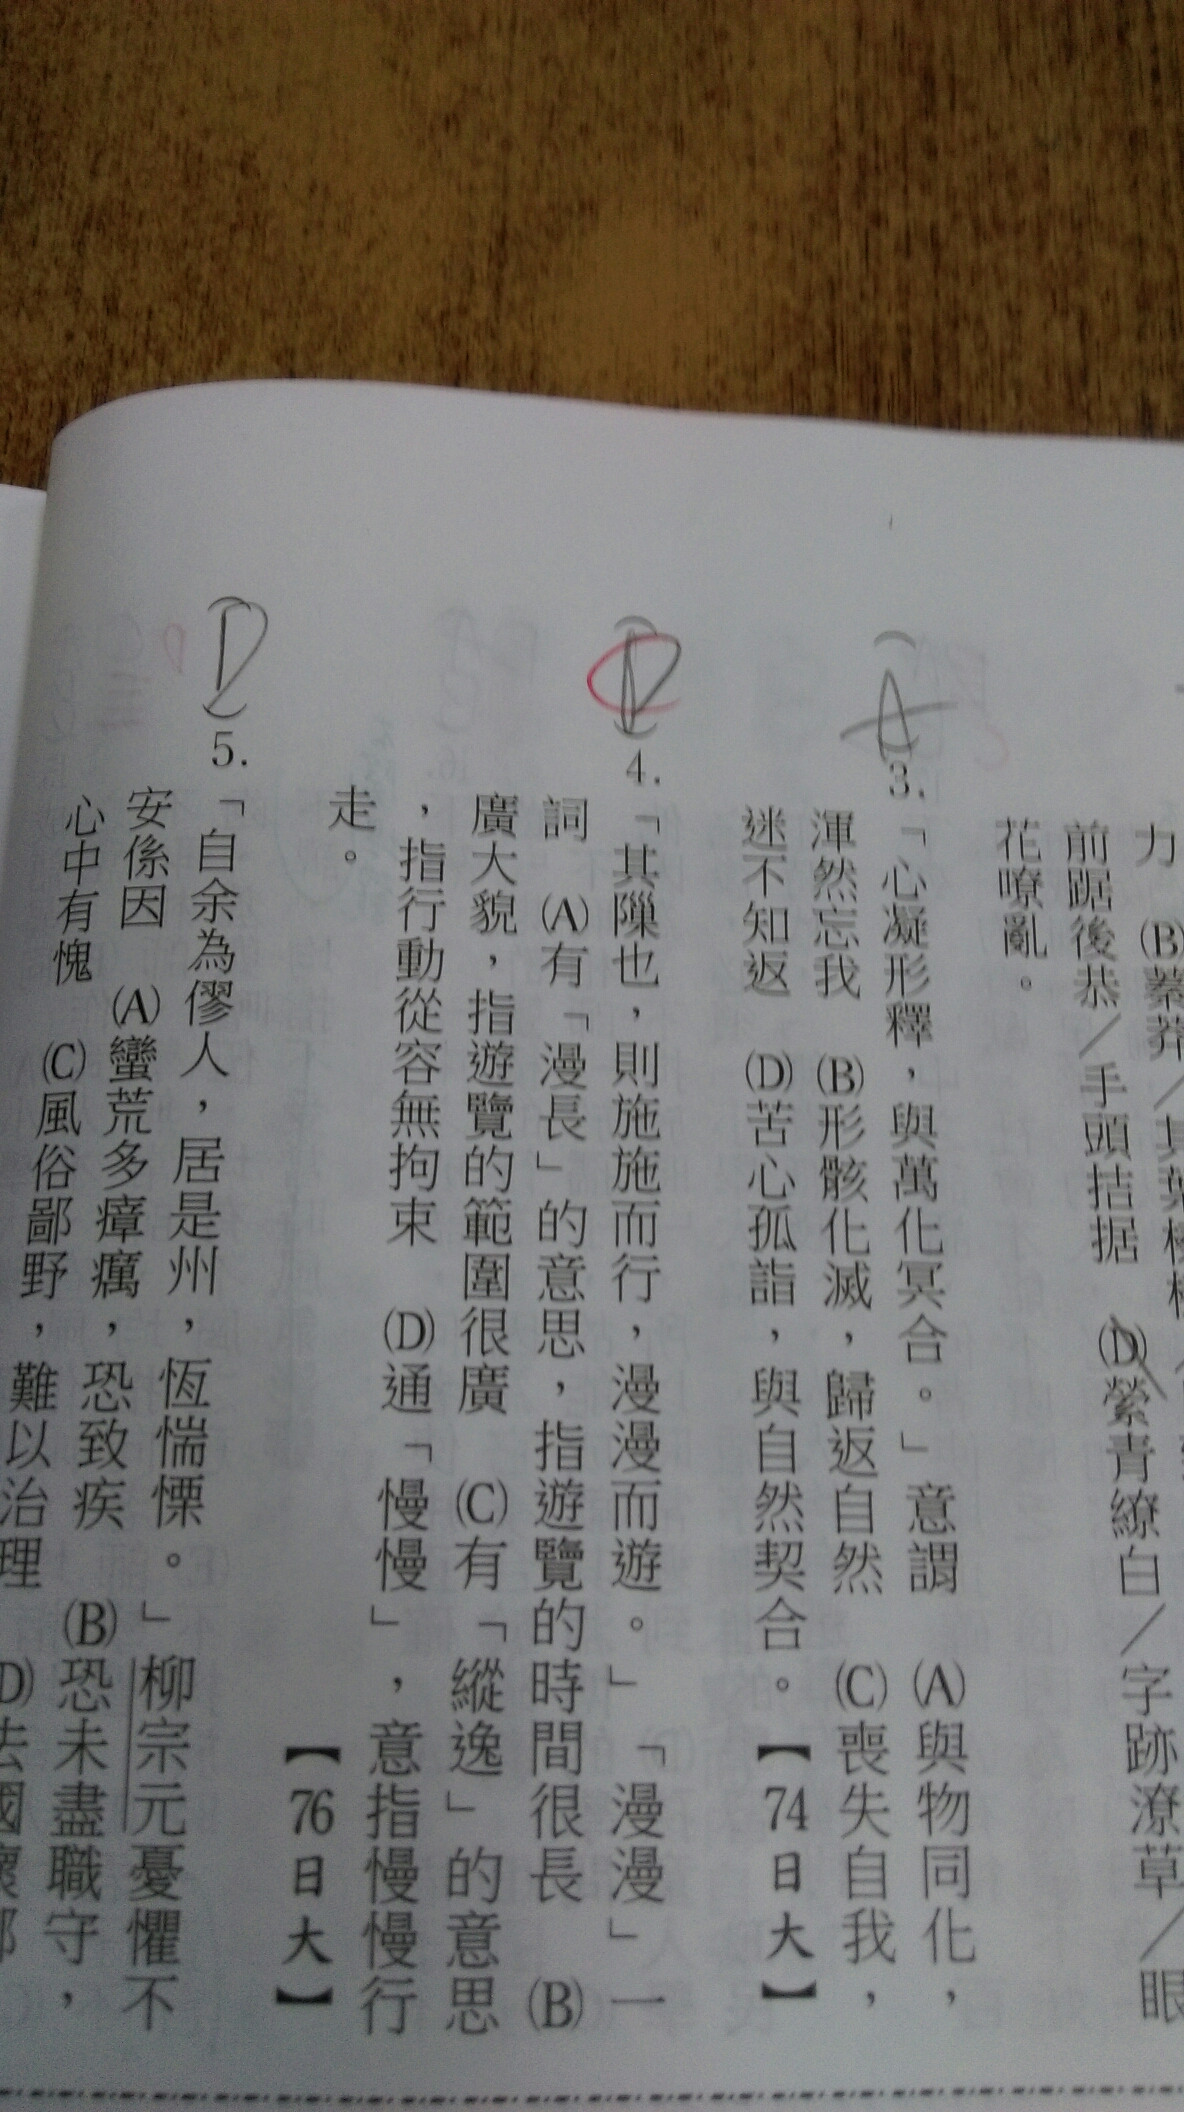 力 (B)
前踞後恭／手頭拮据 (D)縈青繚白／字跡潦草／眼
花嘹亂。
(A)3.「心凝形釋，與萬化冥合。」意謂 (A)與物同化，
渾然忘我 (B)形骸化滅，歸返自然 (C)喪失自我，
迷不知返 (D)苦心孤詣，與自然契合。【74日大】
(D)4.「其隟也，則施施而行，漫漫而遊。」「漫漫」一
詞 (A)有「漫長」的意思，指遊覽的時間很長 (B)
廣大貌，指遊覽的範圍很廣 (C)有「縱逸」的意思
，指行動從容無拘束 (D)通「慢慢」，意指慢慢行
走。【76日大】
(D)5.「自余為僇人，居是州，恆惴慄。」柳宗元憂懼不
安係因 (A)蠻荒多瘴癘，恐致疾 (B)恐未盡職守，
心中有愧 (C)風俗鄙野，難以治理